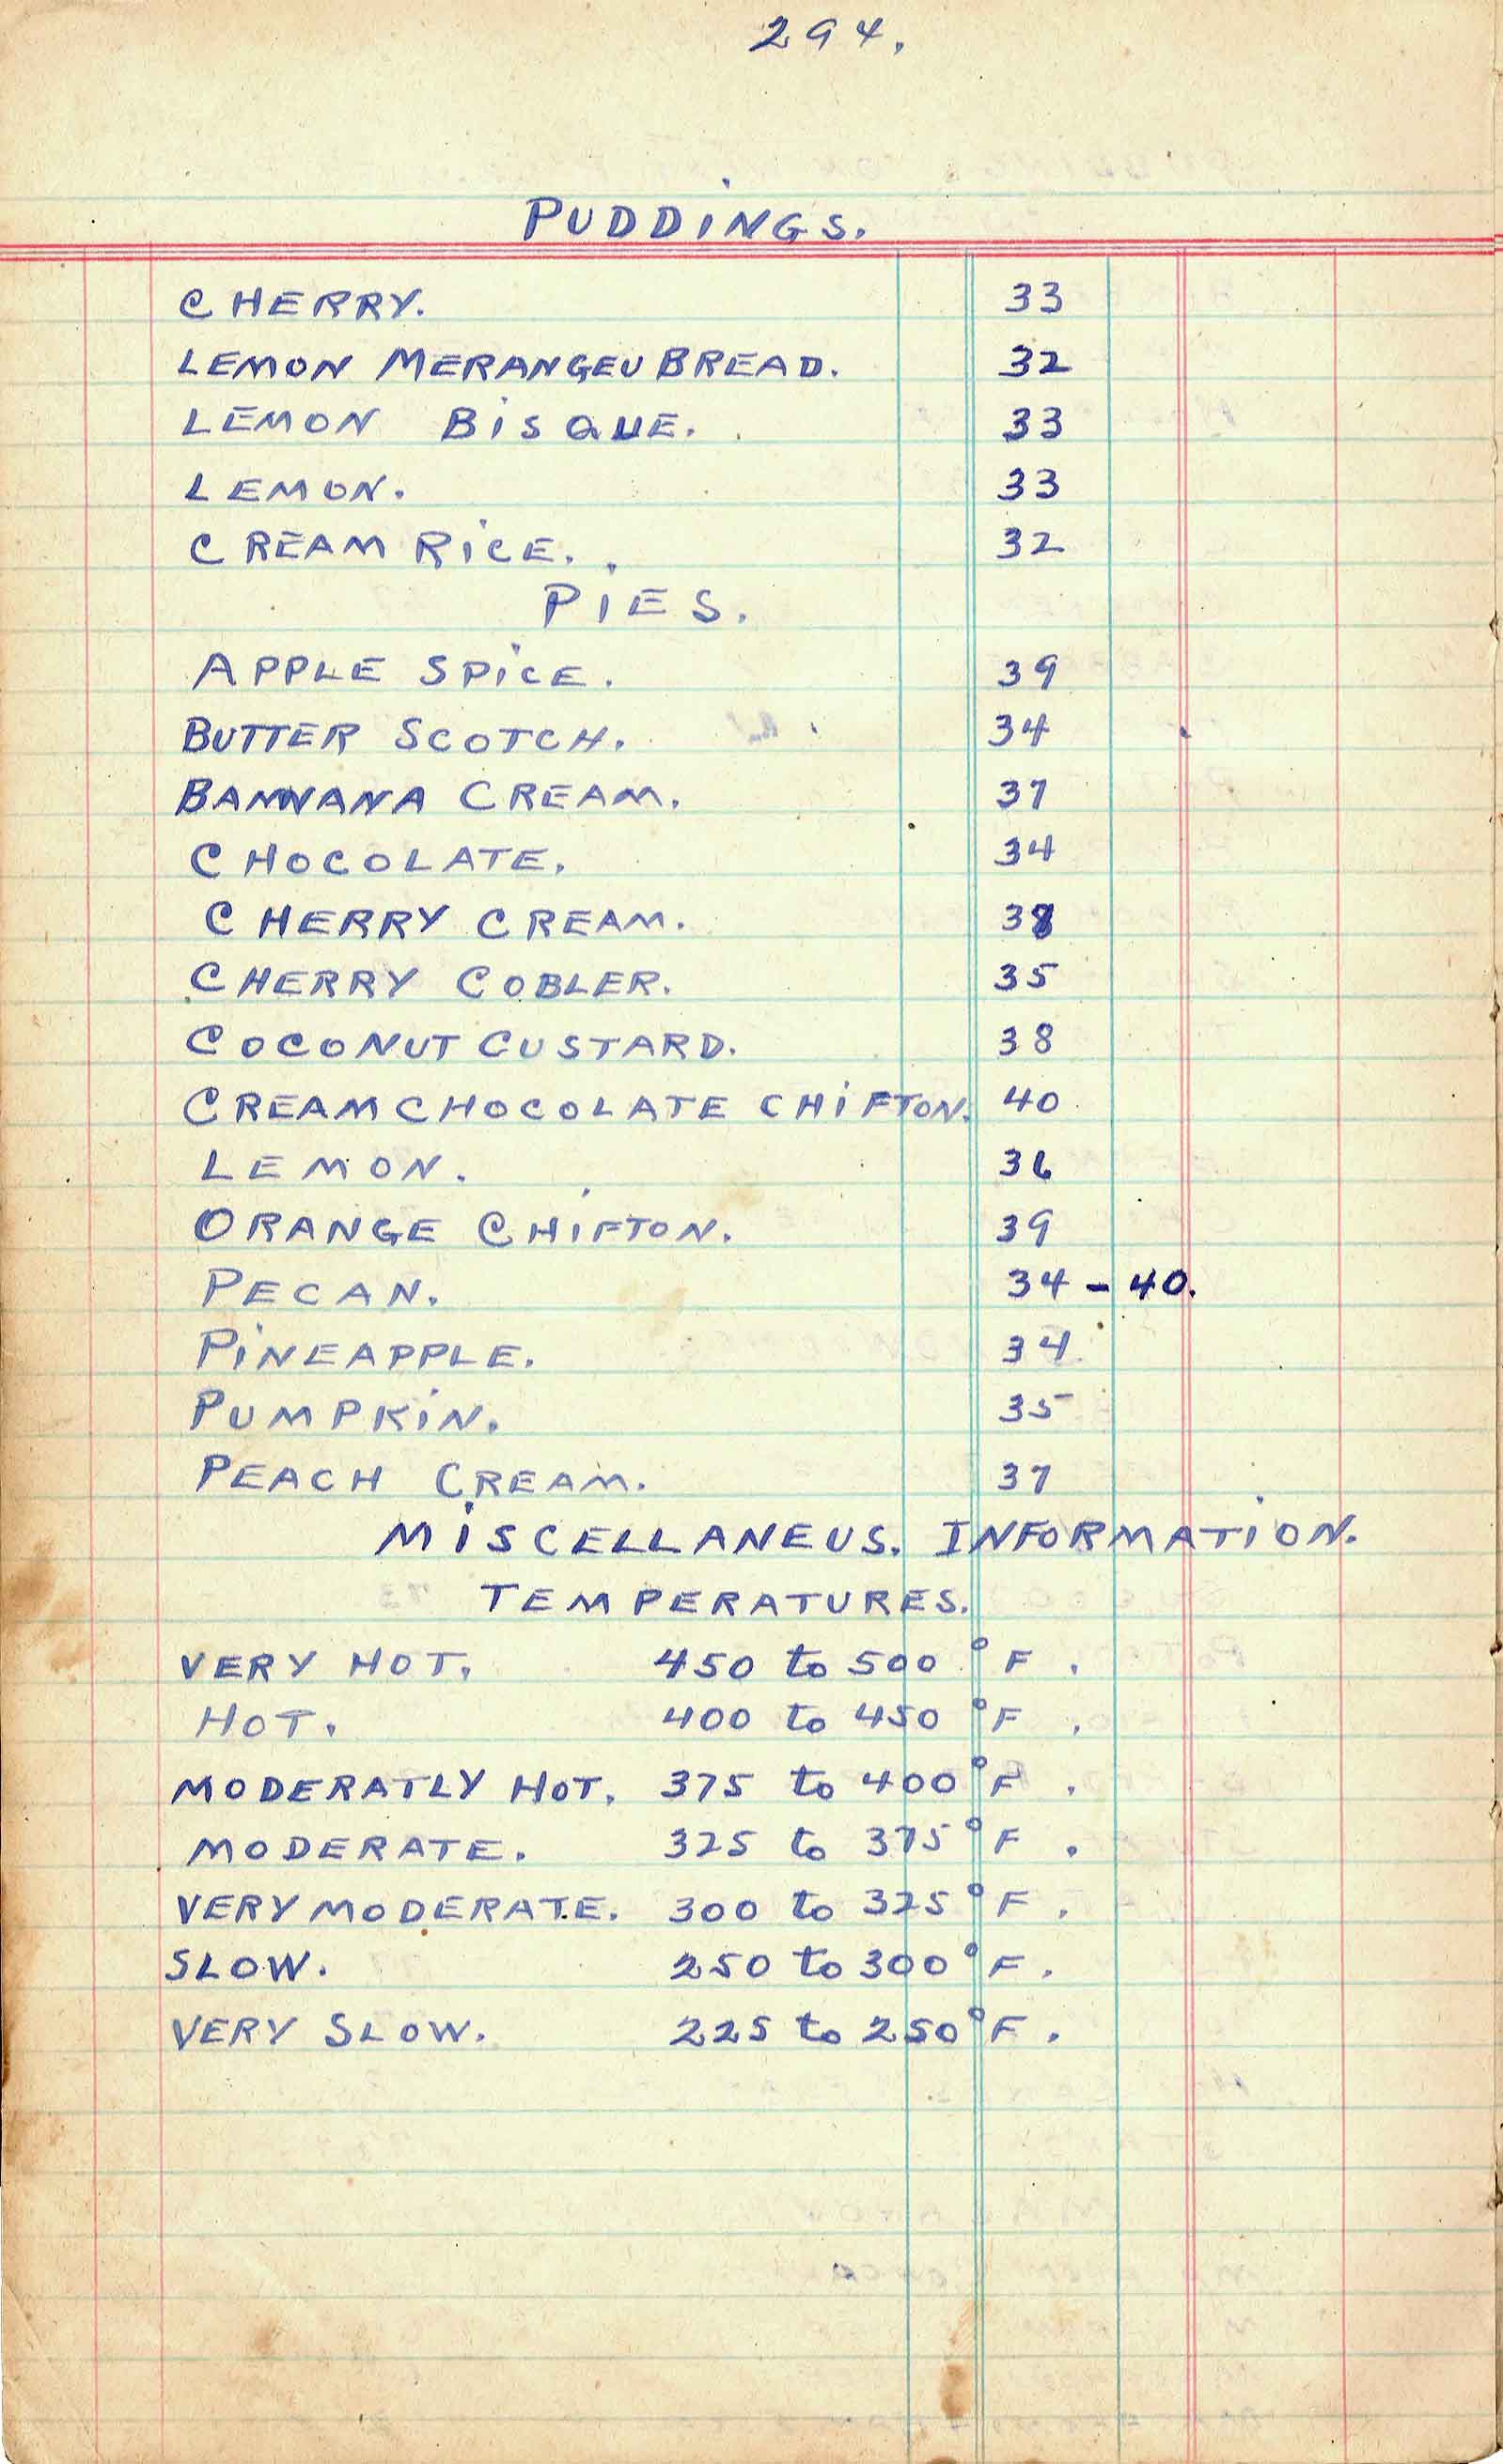 294.
PUDDINGS.
CHERRY. 33
LEMON MERANGEU BREAD. 32
LEMON BISQUE. 33
LEMON. 33
CREAM RICE. 32
PIES.
APPLE SPICE. 39
BUTTER SCOTCH. 34
BANNANA CREAM. 37
CHOCOLATE. 34
CHERRY CREAM. 38
CHERRY COBLER. 35
COCONUT CUSTARD. 38
CREAM CHOCOLATE CHIFTON. 40
LEMON. 36
ORANGE CHIFTON. 39
PECAN. 34 - 40.
PINEAPPLE. 34
PUMPKIN. 35
PEACH CREAM. 37
MISCELLANEUS. INFORMATION.
TEMPERATURES.
VERY HOT. 450 to 500 °F.
HOT. 400 to 450 °F.
MODERATLY HOT. 375 to 400 °F.
MODERATE. 325 to 375 °F.
VERY MODERATE. 300 to 325 °F.
SLOW. 250 to 300 °F.
VERY SLOW. 225 to 250 °F.